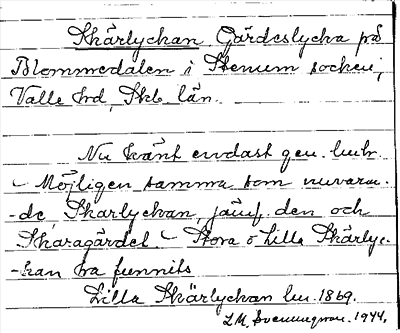 Skärlyckan. Gärdeslycka på
Blommedalen i Stenum socken,
Valle hrd, Skb. län.
Nu känt endast gen. lmhr.
– Möjligen samma som nuvaran-
-de, Skarlyckan, jämf. den och
Skaragärdet. – Stora o Lilla Skärlyc-
-kan ha funnits
Lilla Skärlyckan lm. 1869.
L.M. Svenungson. 1944.